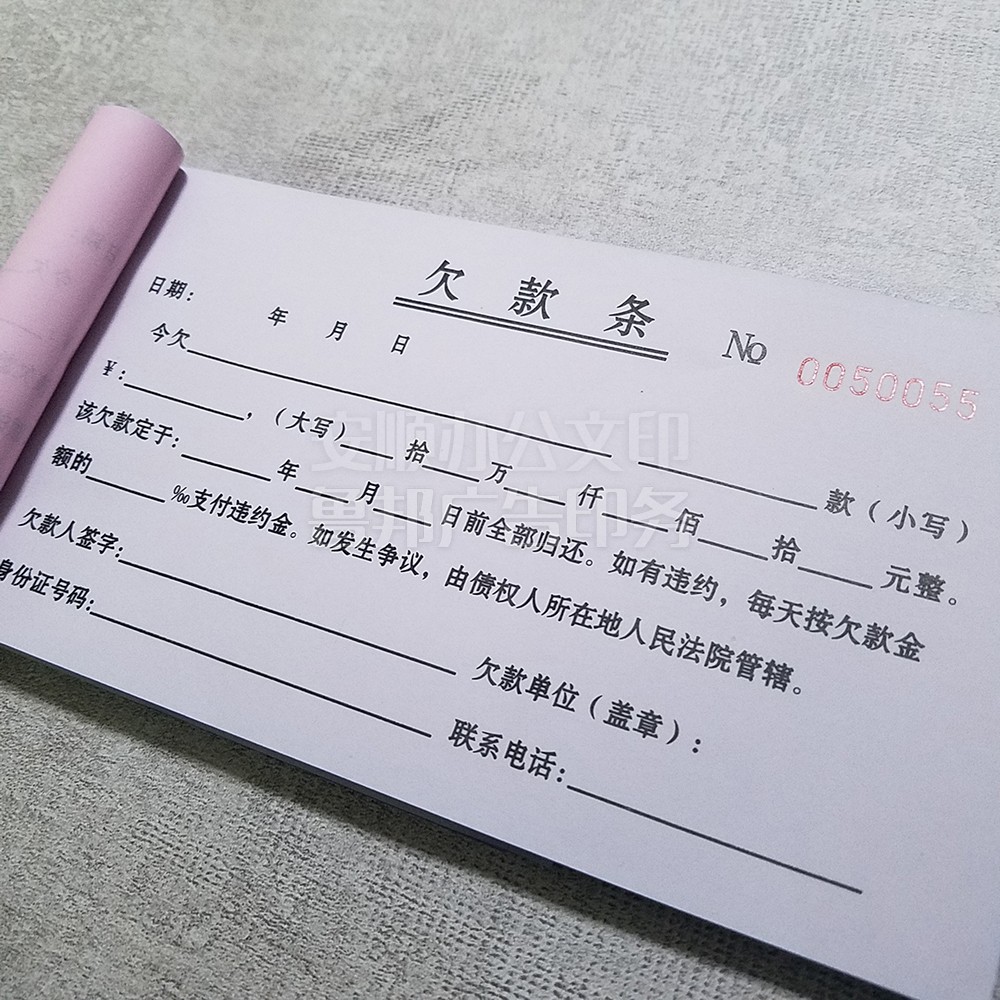 欠款条
No 0050055
日期: 年 月 日
今欠 款(小写)
¥: ,(大写) 拾 万 仟 佰 拾 元整。
该欠款定于: 年 月 日前全部归还。如有违约,每天按欠款金
额的 ‰支付违约金。如发生争议,由债权人所在地人民法院管辖。
欠款人签字: 欠款单位(盖章):
身份证号码: 联系电话:
安顺办公文印
鲁邦广告印务